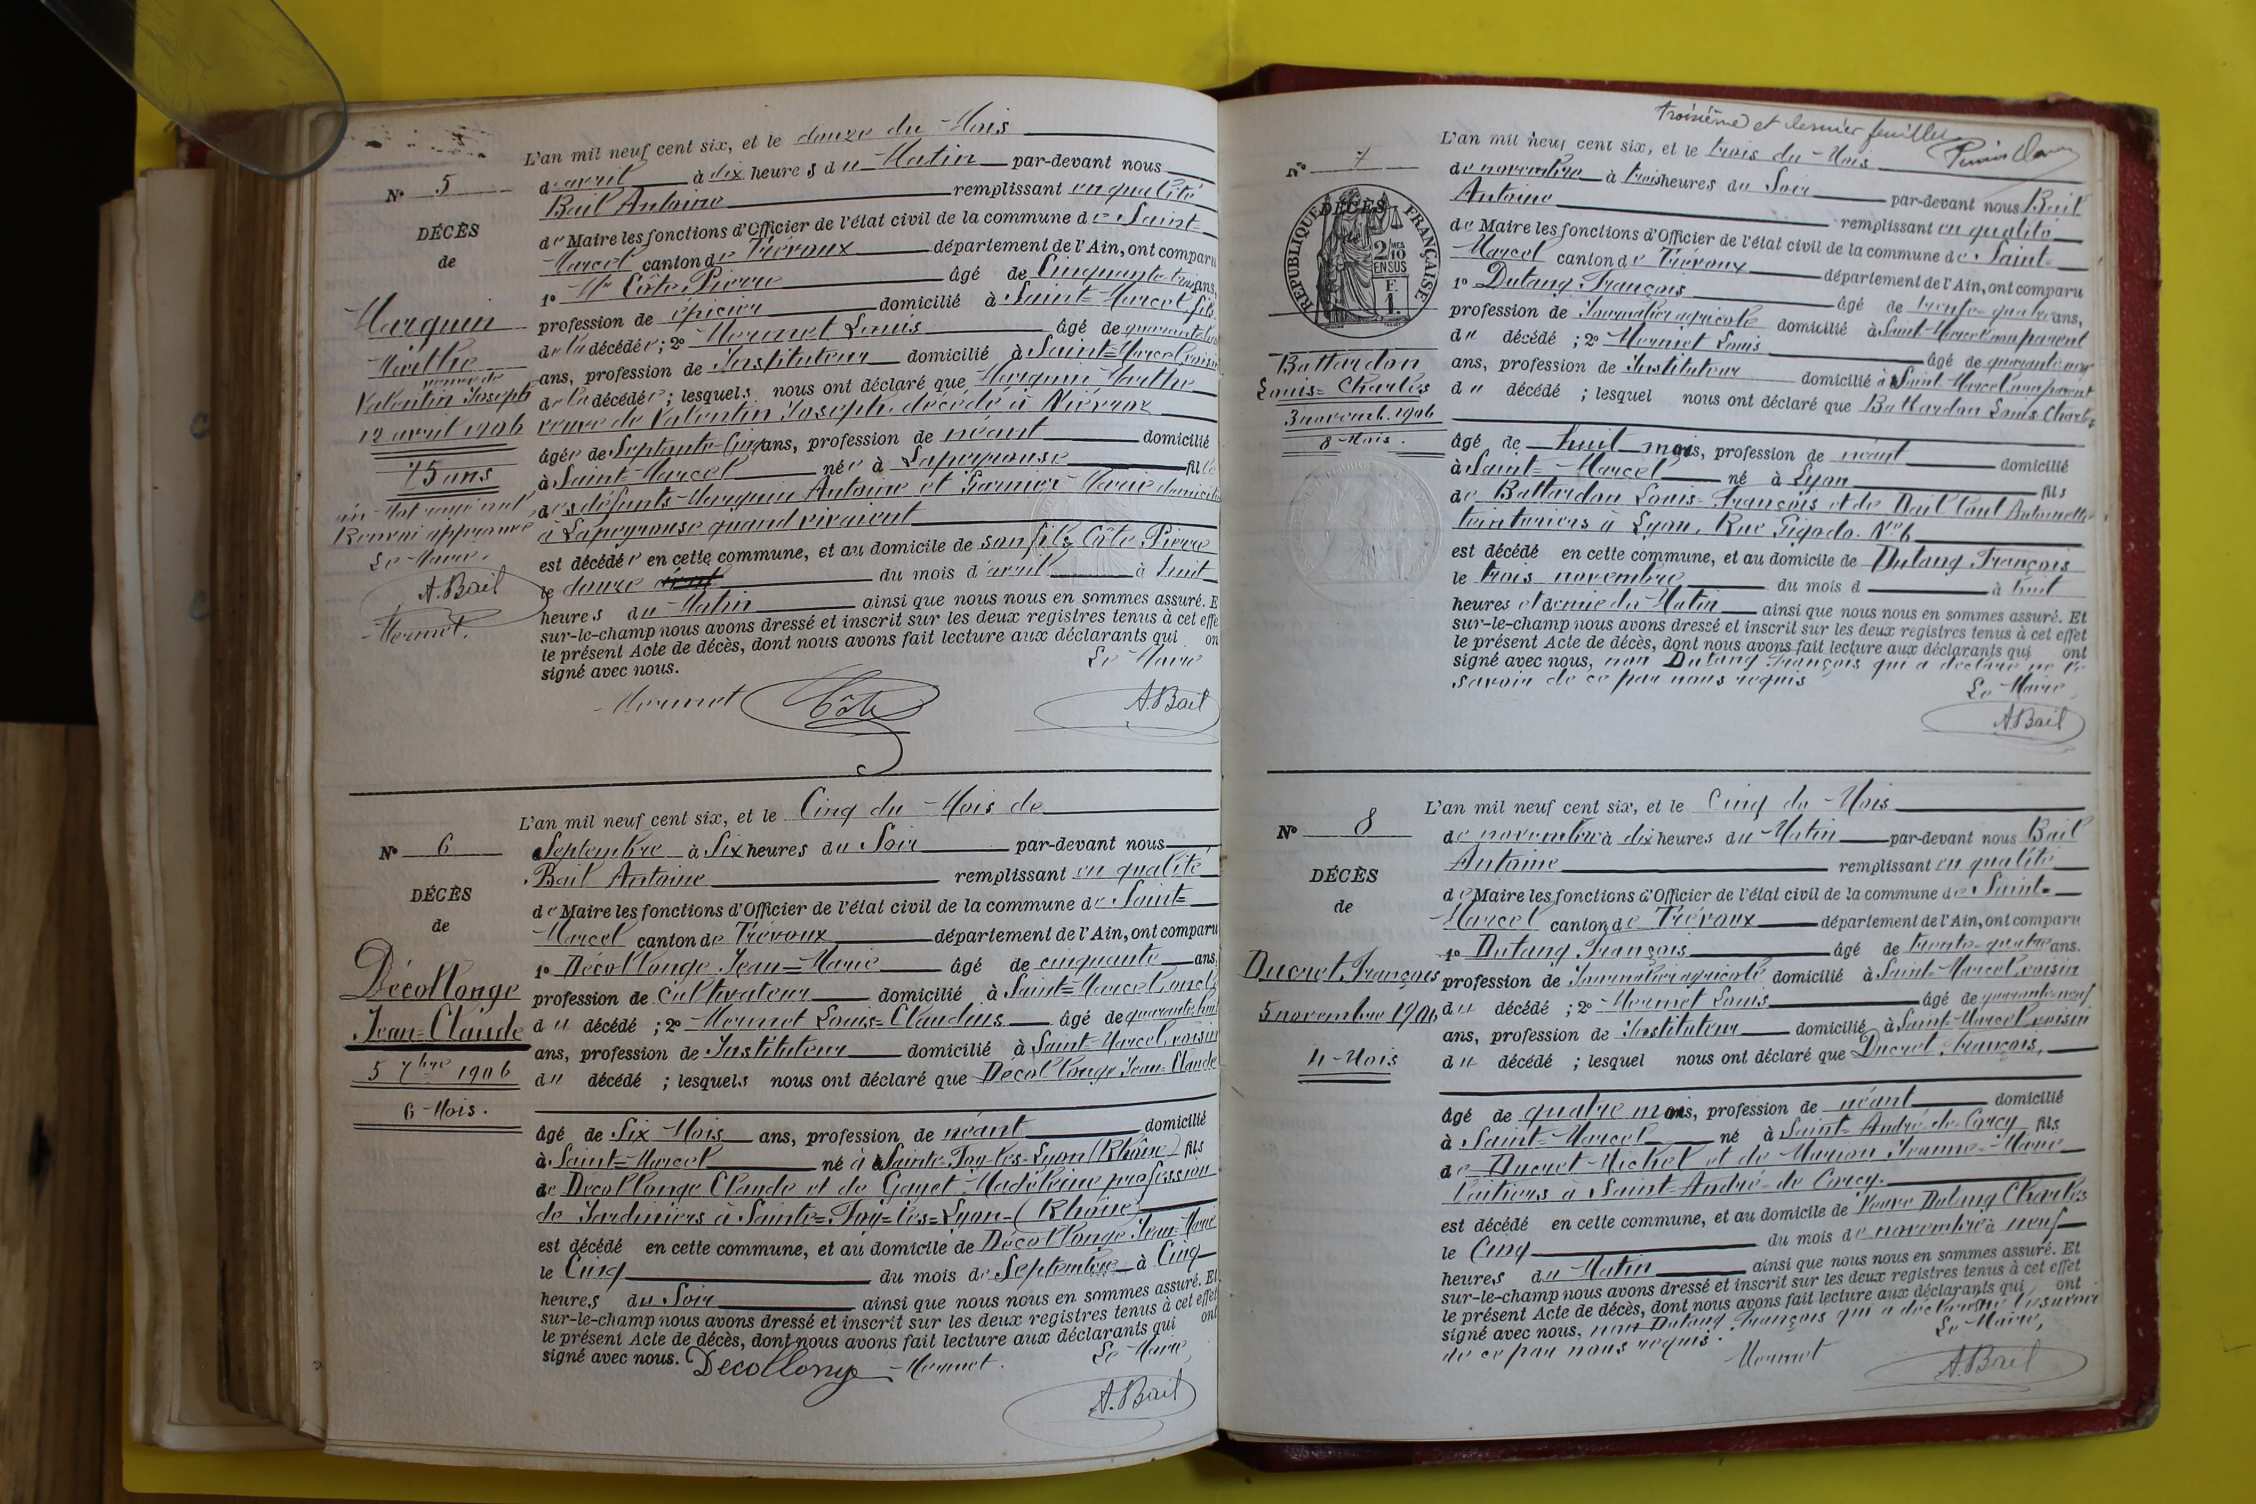 L'an mil neuf cent six, et le douze du Mois
N° 5
d'avril à dix heures du Matin par-devant nous
Bail Antoine remplissant en qualité
DÉCÈS
de Maire les fonctions d'Officier de l'état civil de la commune de Saint=
de
Marcel canton de Trévoux département de l'Ain, ont comparu
1° Mr Côte Pierre âgé de Cinquante trois ans,
profession de épicier domicilié à Saint=Marcel fils
de la décédée ; 2° Mermet Louis âgé de quarante
ans, profession de Instituteur domicilié à Saint=Marcel voisin
de la décédée ; lesquels nous ont déclaré que Marguin Marthe
veuve de Valentin Joseph, décédé à
âgée de Septante-Cinq ans, profession de néant domicilié
à Saint-Marcel née à Lapeyrouse fille
des défunts Marguin Antoine et Garnier Marie domiciliés
à Lapeyrouse quand vivaient
est décédée en cette commune, et au domicile de son fils Côte Pierre
le douze du mois d'avril à huit
heures du Matin ainsi que nous nous en sommes assuré. E
sur-le-champ nous avons dressé et inscrit sur les deux registres tenus à cet effe
le présent Acte de décès, dont nous avons fait lecture aux déclarants qui on
signé avec nous.
Le Maire
Mermet Côte A. Bail
Marguin
Marthe
veuve de
Valentin Joseph
12 avril 1906
75 ans
un mot rayé nul
Renvoi approuvé
Le Maire.
A. Bail
Mermet.
L'an mil neuf cent six, et le Cinq du Mois de
N° 6
Septembre à Six heures du Soir par-devant nous
Bail Antoine remplissant en qualité
DÉCÈS
de Maire les fonctions d'Officier de l'état civil de la commune de Saint=
de
Marcel canton de Trévoux département de l'Ain, ont comparu
1° Décollonge Jean=Marie âgé de cinquante ans,
profession de Cultivateur domicilié à Saint=Marcel oncle
du décédé ; 2° Mermet Louis=Claudius âgé de quarante huit
ans, profession de Instituteur domicilié à Saint=Marcel voisin
du décédé ; lesquels nous ont déclaré que Décollonge Jean=Claude
âgé de Six Mois ans, profession de néant domicilié
à Saint=Marcel né à Sainte Foy-les-Lyon (Rhône) fils
de Décollonge Claude et de Gayet Madeleine profession
de Jardiniers à Sainte=Foy=les=Lyon (Rhône)
est décédé en cette commune, et au domicile de Décollonge Jean-Marie
le Cinq du mois de Septembre à Cinq
heures du Soir ainsi que nous nous en sommes assuré. Et
sur-le-champ nous avons dressé et inscrit sur les deux registres tenus à cet effet
le présent Acte de décès, dont nous avons fait lecture aux déclarants qui ont
signé avec nous.
Le Maire,
Decollonge Mermet. A. Bail
Décollonge
Jean=Claude
5 7bre 1906
6 Mois.
troisième et dernier feuillet
L'an mil neuf cent six, et le trois du Mois
N° 7
de novembre à trois heures du Soir par-devant nous Bail
Antoine remplissant en qualité
DÉCÈS
RÉPUBLIQUE FRANÇAISE
2/10 MES
EN SUS
F.
1.
de Maire les fonctions d'Officier de l'état civil de la commune de Saint=
Marcel canton de Trévoux département de l'Ain, ont comparu
1° Dutang François âgé de trente-quatre ans,
profession de Journalier agricole domicilié à Saint-Marcel non parent
du décédé ; 2° Mermet Louis âgé de quarante neuf
ans, profession de Instituteur domicilié à Saint-Marcel non parent
du décédé ; lesquel nous ont déclaré que Battardon Louis Charles
âgé de huit mois, profession de néant domicilié
à Saint=Marcel né à Lyon fils
de Battardon Louis=François et de Antoinette
teinturiers à Lyon, Rue N° 6
est décédé en cette commune, et au domicile de Dutang François
le trois novembre du mois d à huit
heures et demie du Matin ainsi que nous nous en sommes assuré. Et
sur-le-champ nous avons dressé et inscrit sur les deux registres tenus à cet effet
le présent Acte de décès, dont nous avons fait lecture aux déclarants qui ont
signé avec nous, non Dutang François qui a déclaré ne le
savoir de ce par nous requis
Le Maire
A. Bail
Battardon
Louis=Charles
3 novemb. 1906
8 Mois.
L'an mil neuf cent six, et le Cinq du Mois
N° 8
de novembre à dix heures du Matin par-devant nous Bail
Antoine remplissant en qualité
DÉCÈS
de Maire les fonctions d'Officier de l'état civil de la commune de Saint=
de
Marcel canton de Trévoux département de l'Ain, ont comparu
1° Dutang François âgé de trente-quatre ans.
profession de Journalier agricole domicilié à Saint-Marcel voisin
du décédé ; 2° Mermet Louis âgé de quarante neuf
ans, profession de Instituteur domicilié à Saint-Marcel voisin
du décédé ; lesquel nous ont déclaré que Ducret François,
âgé de quatre mois, profession de néant domicilié
à Saint=Marcel né à Saint-André-de-Corcy fils
de Ducret Michel et de Marion Jeanne-Marie
laitiers à Saint=André-de Corcy.
est décédé en cette commune, et au domicile de Veuve Dutang Charles
le Cinq du mois de novembre à neuf
heures du Matin ainsi que nous nous en sommes assuré. Et
sur-le-champ nous avons dressé et inscrit sur les deux registres tenus à cet effet
le présent Acte de décès, dont nous avons fait lecture aux déclarants qui ont
signé avec nous, non Dutang François qui a déclaré ne le savoir
de ce par nous requis.
Le Maire,
Mermet A. Bail
Ducret François
5 novembre 1906
4 Mois